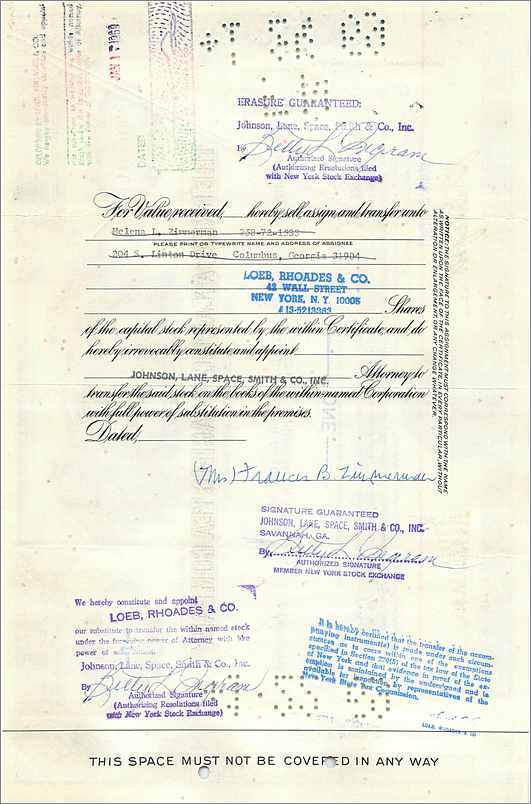 JAN 17 1969
DATED
ERASURE GUARANTEED:
Johnson, Lane, Space, Smith & Co., Inc.
By Betty L. Ingram
Authorized Signature
(Authorizing Resolutions filed
with New York Stock Exchange)
For Value received, hereby sell, assign and transfer unto
Helena L. Zimmerman
PLEASE PRINT OR TYPEWRITE NAME AND ADDRESS OF ASSIGNEE
204 S. Linton Drive Columbus, Georgia 31904
LOEB, RHOADES & CO.
42 WALL STREET
NEW YORK, N. Y. 10005
#13-5213363
Shares
of the capital stock represented by the within Certificate, and do
hereby irrevocably constitute and appoint
Attorney to
JOHNSON, LANE, SPACE, SMITH & CO., INC.
transfer the said stock on the books of the within-named Corporation
with full power of substitution in the premises.
Dated,
NOTICE: THE SIGNATURE TO THIS ASSIGNMENT MUST CORRESPOND WITH THE NAME
AS WRITTEN UPON THE FACE OF THE CERTIFICATE, IN EVERY PARTICULAR, WITHOUT
ALTERATION OR ENLARGEMENT, OR ANY CHANGE WHATEVER.
(Mrs) Frances B. Zimmerman
SIGNATURE GUARANTEED
JOHNSON, LANE, SPACE, SMITH & CO., INC.
SAVANNAH, GA.
By Betty L. Ingram
AUTHORIZED SIGNATURE
MEMBER NEW YORK STOCK EXCHANGE
We hereby constitute and appoint
LOEB, RHOADES & CO.
our substitute to transfer the within named stock
under the foregoing power of Attorney with like
power of substitution.
Johnson, Lane, Space, Smith & Co., Inc.
By Betty L. Ingram
Authorized Signature
(Authorizing Resolutions filed
with New York Stock Exchange)
It is hereby certified that the transfer of the accom-
panying instrument(s) is made under such circum-
stances as to come within one of the exemptions
specified in Section 270(5) of the tax law of the State
of New York and that evidence in proof of the ex-
emption is maintained by the undersigned and is
available for inspection by representatives of the
New York State Tax Commission.
LOEB, RHOADES & CO.
THIS SPACE MUST NOT BE COVERED IN ANY WAY